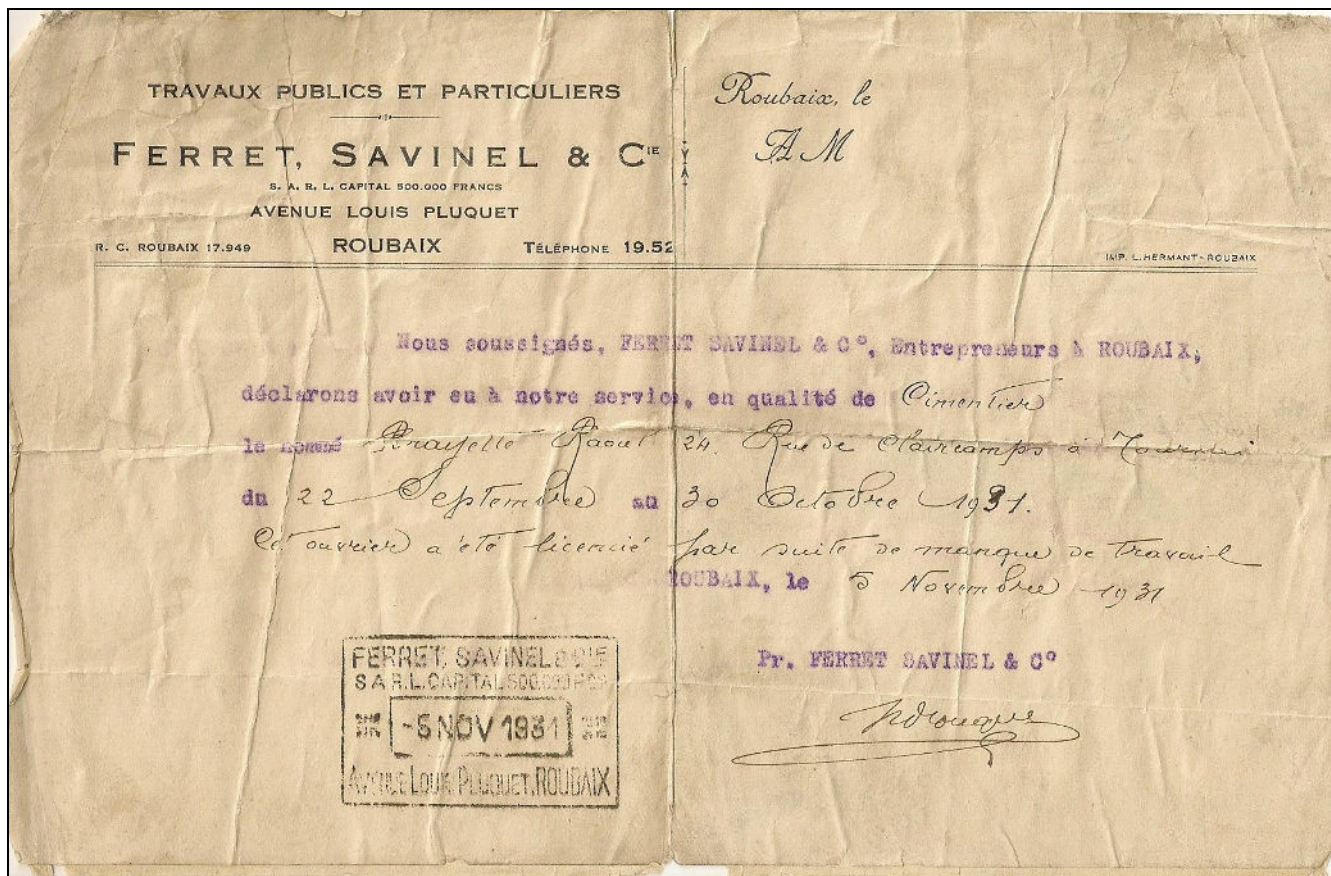 TRAVAUX PUBLICS ET PARTICULIERS
FERRET, SAVINEL & CIE
S. A. R. L. CAPITAL 500.000 FRANCS
AVENUE LOUIS PLUQUET
R. C. ROUBAIX 17.949 ROUBAIX TÉLÉPHONE 19.52
Roubaix, le
A M
IMP. L. HERMANT - ROUBAIX
Nous soussignés, FERRET SAVINEL & C°, Entrepreneurs à ROUBAIX,
déclarons avoir eu à notre service, en qualité de Cimentier
le nommé Raoul 24. Rue de Claircamps à
du 22 Septembre au 30 Octobre 1931.
Cet ouvrier a été licencié par suite de manque de travail
ROUBAIX, le 5 Novembre 1931
Pr. FERRET SAVINEL & C°
FERRET, SAVINEL & CIE
S A R.L. CAPITAL 500.000 FCS
-5 NOV 1931
AVENUE LOUIS PLUQUET, ROUBAIX